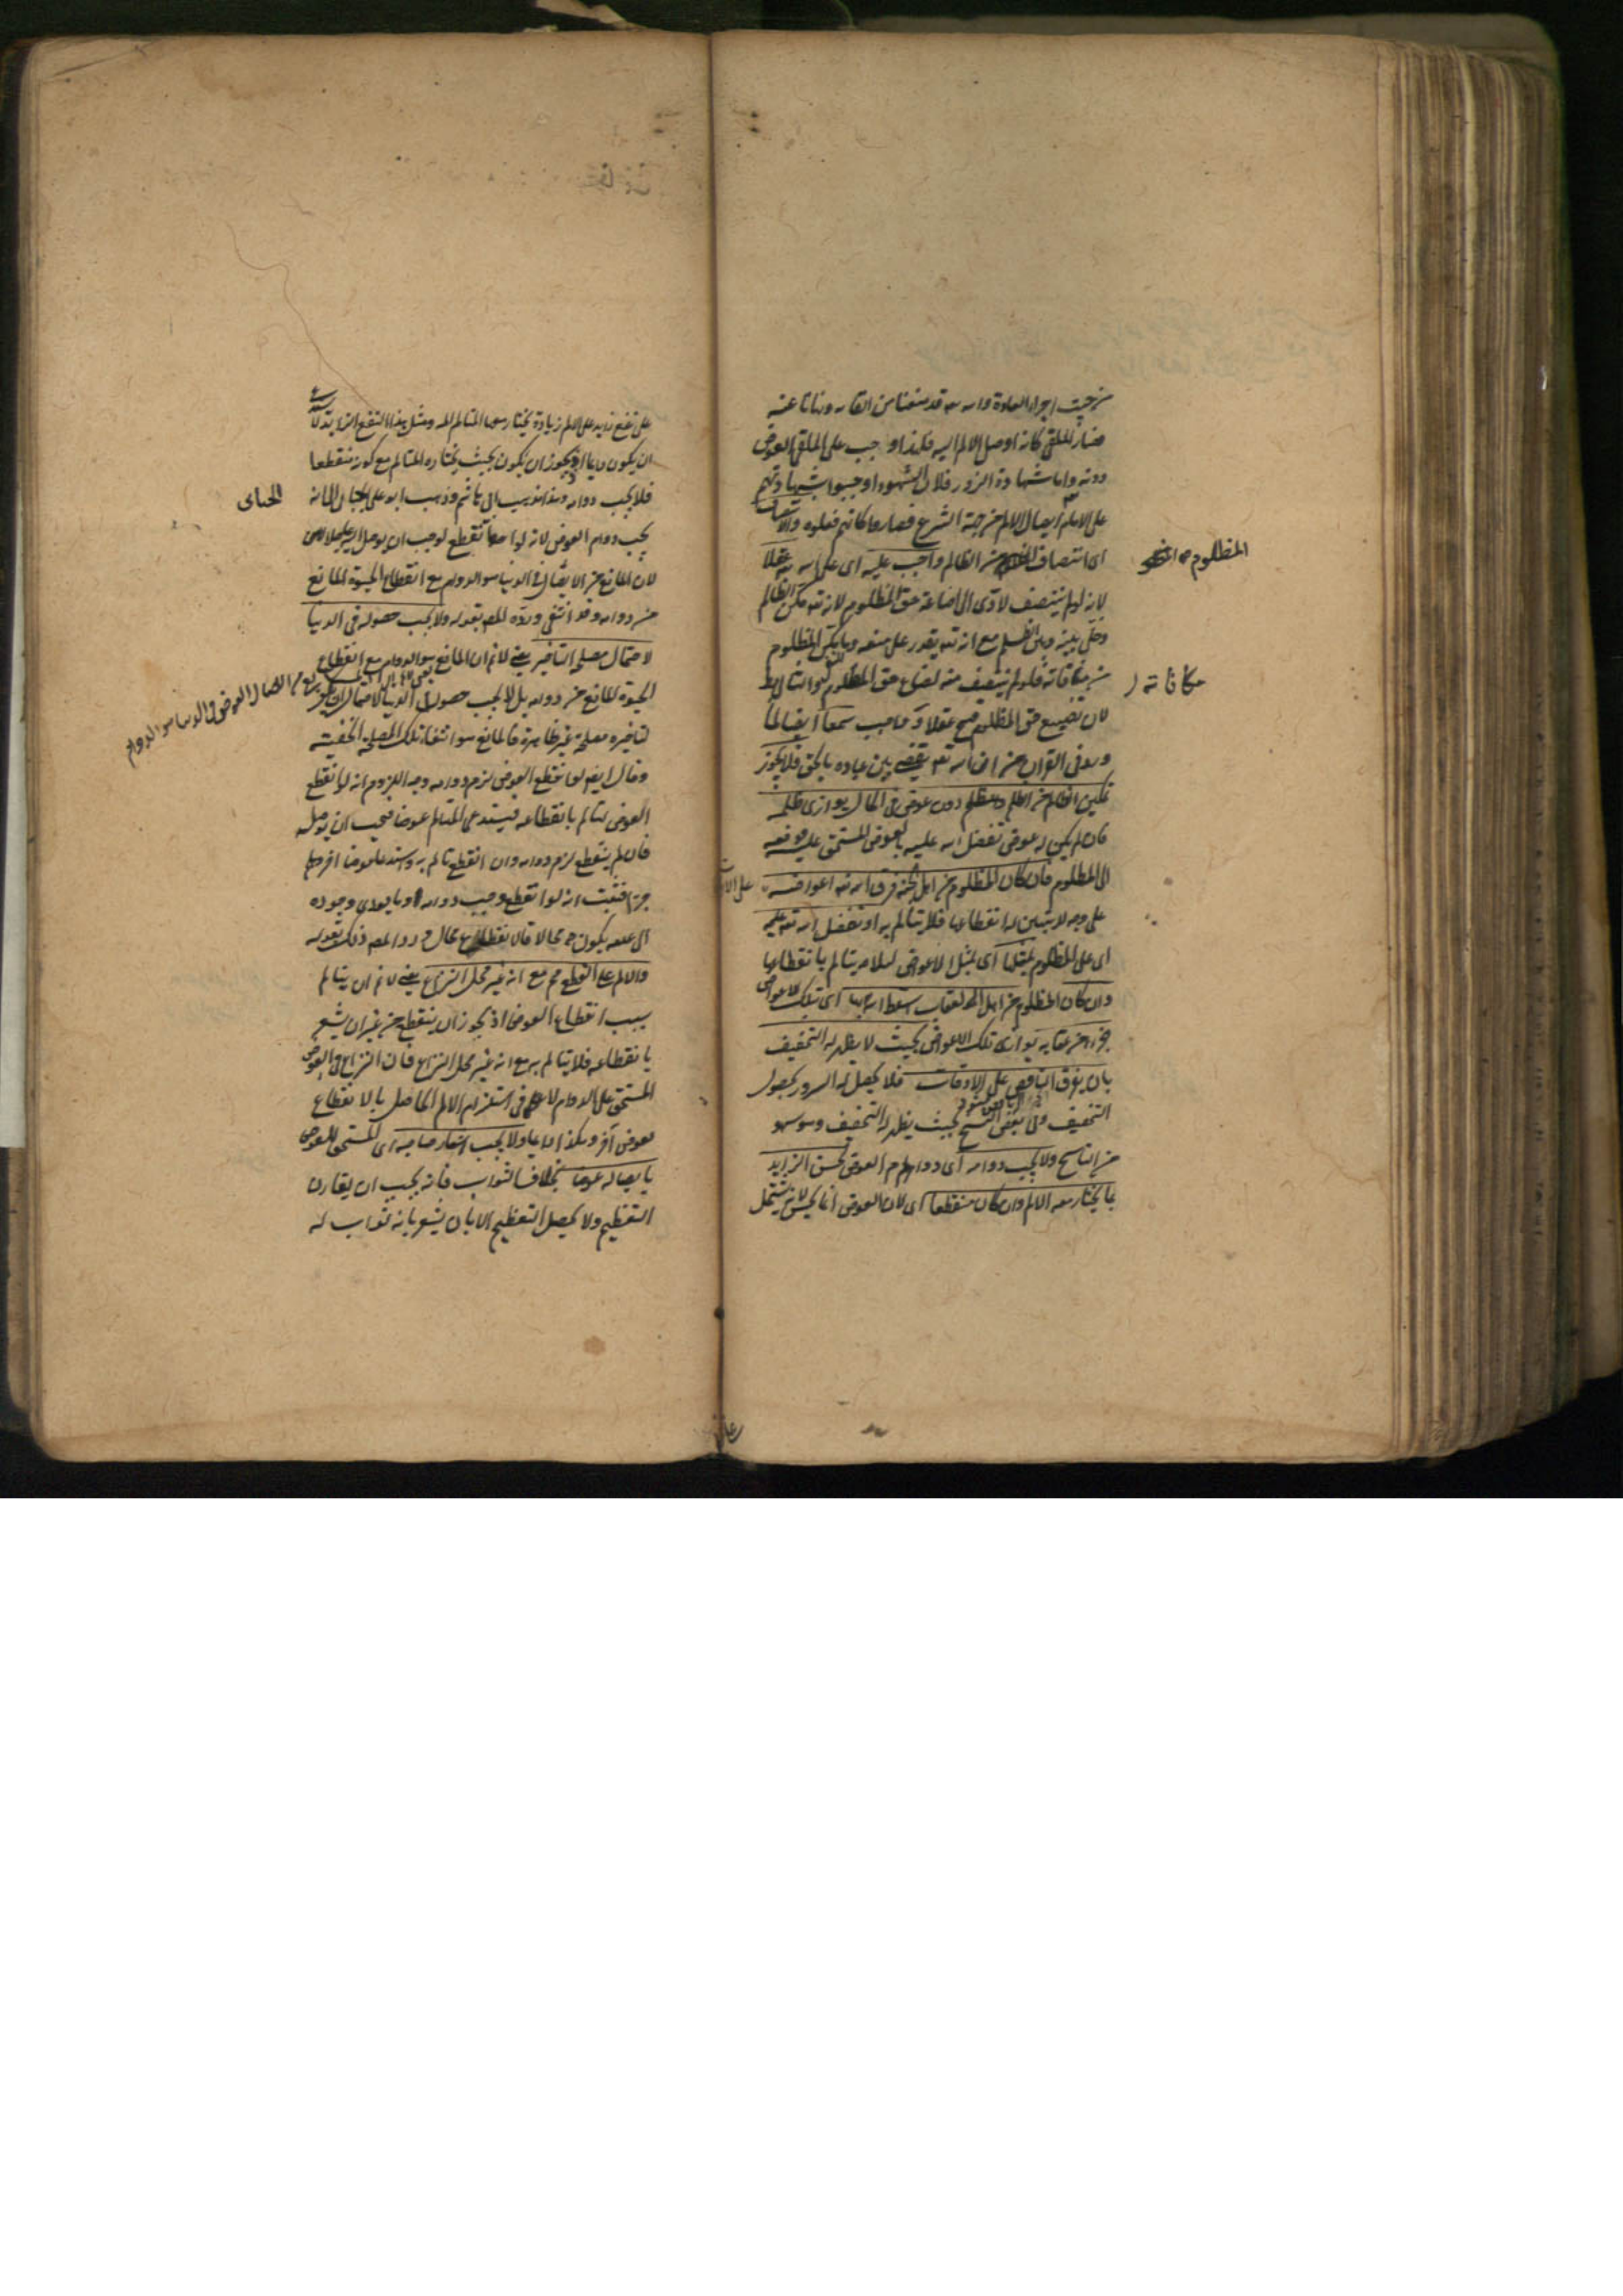 من حيث اجراء العادة والله تعالى قد منعنا من القائه ونهانا عنه
فصار الملقى كانه اوصل الالم اليه فلهذا وجب على الملقى العوض
دونه واما شهادة الزور فلان الشهود اوجبوا بشهادتهم
على الامام ايصال الالم من جهة الشرع فصاروا كانهم فعلوه والانتصاف
اى انتصاف المظلوم من الظالم واجب عليه اى على الله تعالى عقلا
لانه لو لم ينتصف لادى الى اضاعة حق المظلوم لانه تعالى مكن الظالم
وخلى بينه وبين الظلم مع انه تعالى يقدر على منعه وما مكن المظلوم
من مكافاته فلو لم ينتصف منه لضاع حق المظلوم
لان تضييع حق المظلوم قبيح عقلا وواجب سمعا ايضا لما
ورد فى القران من ان الله تعالى يقضى بين عباده بالحق فلا يجوز
تمكين الظالم من الظلم دون عوض فى الحال يوازى ظلمه
فان لم يكن له عوض تفضل الله عليه بالعوض المستحق عليه ودفعه
الى المظلوم فان كان المظلوم من اهل الجنة فرق الله تعالى اعواضه على الاوقات
على وجه لا يتبين له انقطاعها فلا يتالم به او تفضل الله تعالى عليه
اى على المظلوم بمثلها اى بمثل الاعواض لئلا يتالم بانقطاعها
وان كان المظلوم من اهل العقاب اسقط الله بها اى بتلك الاعواض
جزءا من عقابه يوازى تلك الاعواض بحيث لا يظهر له التخفيف
بان يفرق الناقص على الاوقات فلا يحصل له السرور بحصول
التخفيف وفى بعض النسخ بحيث يظهر له التخفيف وهو سهو
من الناسخ ولا يجب دوامه اى دوام العوض لحسن الزايد
بما يختار معه الالم وان كان منقطعا اى لان العوض انما يحسن لانه يشتمل
المظلوم
مكافاته
على نفع زايد على الالم زيادة يختار معها المتالم الالم ومثل هذا النفع الزايد لا
ان يكون دايما اذ يجوز ان يكون بحيث يختاره المتالم مع كونه منقطعا
فلا يجب دوامه وهذا مذهب ابى هاشم وذهب ابو على الجبائى الى انه
يجب دوام العوض لانه لو انقطع لوجب ان يوصل اليه
لان المانع من الايصال فى الدنيا هو الدوام مع انقطاع الحيوة المانع
من دوامه وقد انتفى ورده المص بقوله ولا يجب حصوله فى الدنيا
لاحتمال مصلحة التاخير يعنى لا نم ان المانع هو الدوام مع انقطاع
الحيوة المانع من دوامه بل لا يجب حصوله فى الدنيا لاحتمال ان يكون
لتاخيره مصلحة غير ظاهرة فالمانع هو انتفاء تلك المصلحة الخفية
وقال ايضا لو انقطع العوض لزم دوامه وجه اللزوم انه لو انقطع
العوض لتالم بانقطاعه فيستدعى المتالم عوضا فيجب ان يوصله
فان لم ينقطع لزم دوامه وان انقطع تالم به واستدعى عوضا اخر وهلم
جرا فثبت انه لو انقطع وجب دوامه وما يودى وجوده
الى عدمه يكون محالا فانقطاعه محال ورد المص ذلك بقوله
والالم على القطع مم مع انه غير محل النزاع يعنى لا نم ان يتالم
بسبب انقطاع العوض اذ يجوز ان ينقطع من غير ان يشعر
بانقطاعه فلا يتالم به مع انه غير محل النزاع فان النزاع فى العوض
المستحق على الدوام لا فى استلزام الالم الحاصل بالانقطاع
لعوض آخر وهكذا دايما ولا يجب اشعار صاحبه اى المستحق للعوض
بايصاله عوضا بخلاف الثواب فانه يجب ان يقارن
التعظيم ولا يحصل التعظيم الا بان يشعر بانه ثواب له
الجبائى